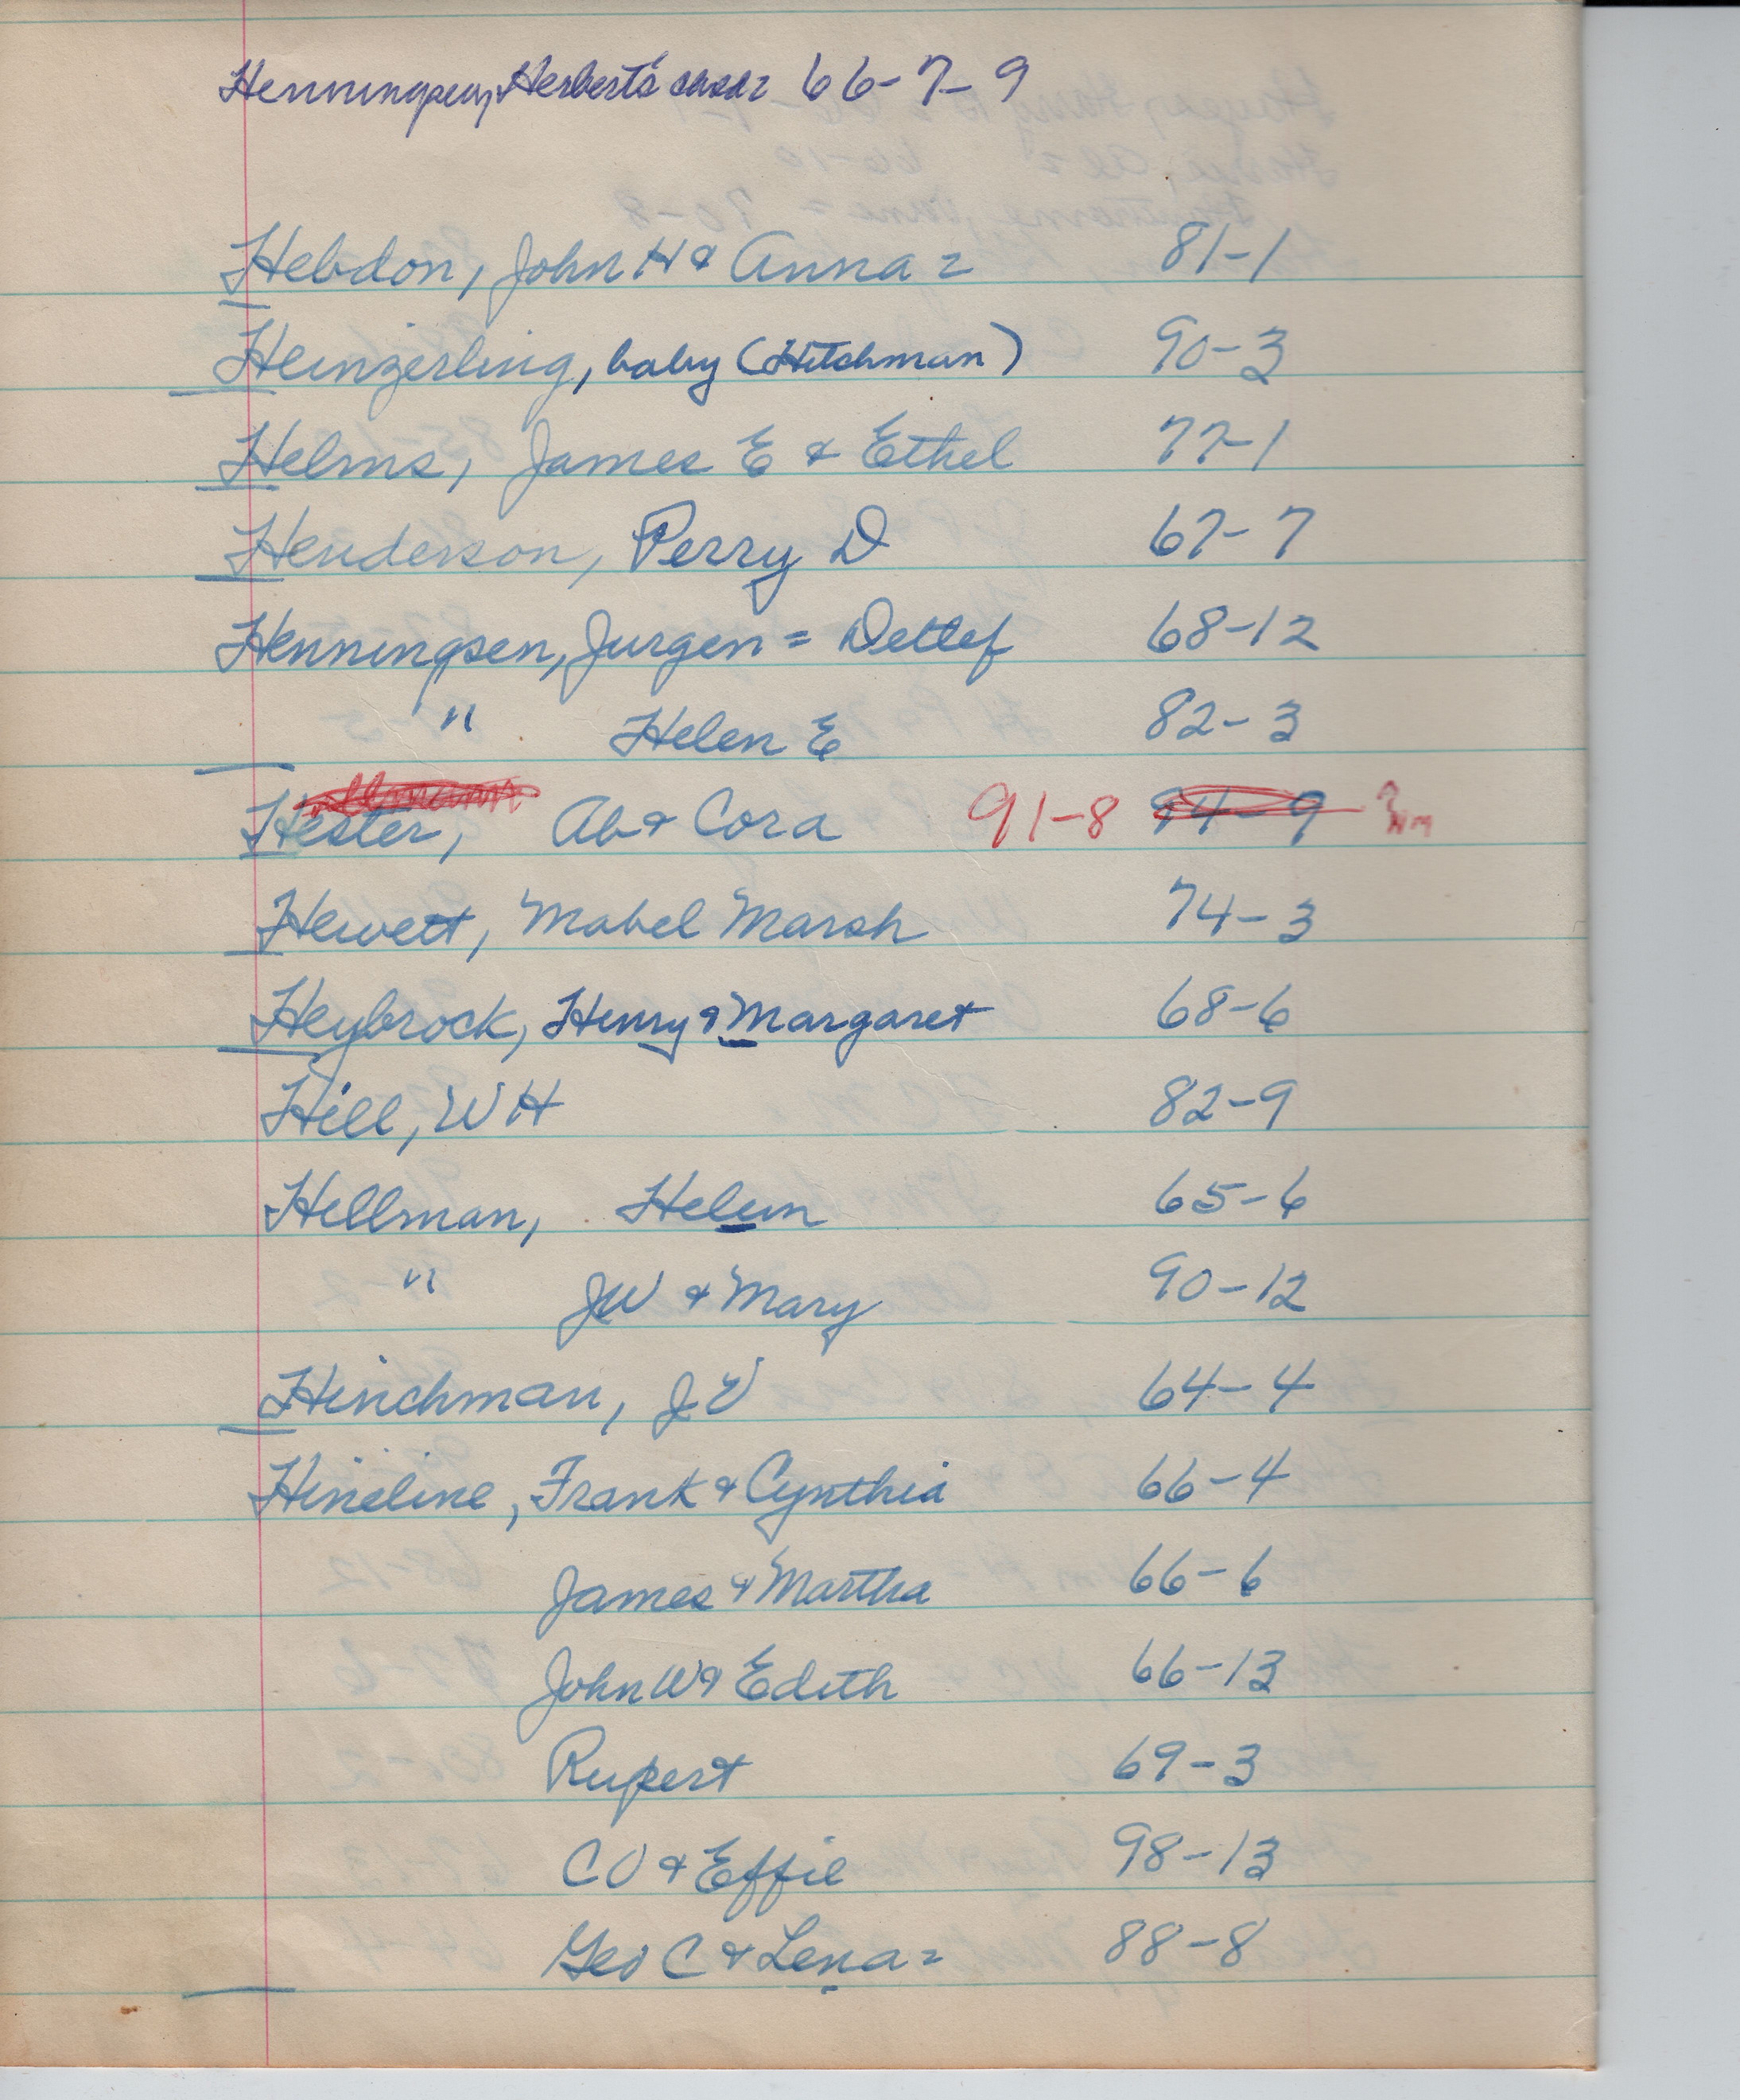 Henningsen, Herbert's 66-7-9
Hebdon, John H & Anna = 81-1
Heinzerling, baby (Hitchman) 90-3
Helms, James E & Ethel 77-1
Henderson, Perry D 67-7
Henningsen, Jurgen = Detlef 68-12
" Helen E 82-3
Hester, Ab & Cora 91-8 94-9 ?
Hewett, Mabel Marsh 74-3
Heybrock, Henry & Margaret 68-6
Hill, WH 82-9
Hellman, Helen 65-6
" JW & Mary 90-12
Hinchman, JV 64-4
Hineline, Frank & Cynthia 66-4
James & Martha 66-6
John W & Edith 66-13
Rupert 69-3
CV & Effie 98-13
Geo C & Lena = 88-8